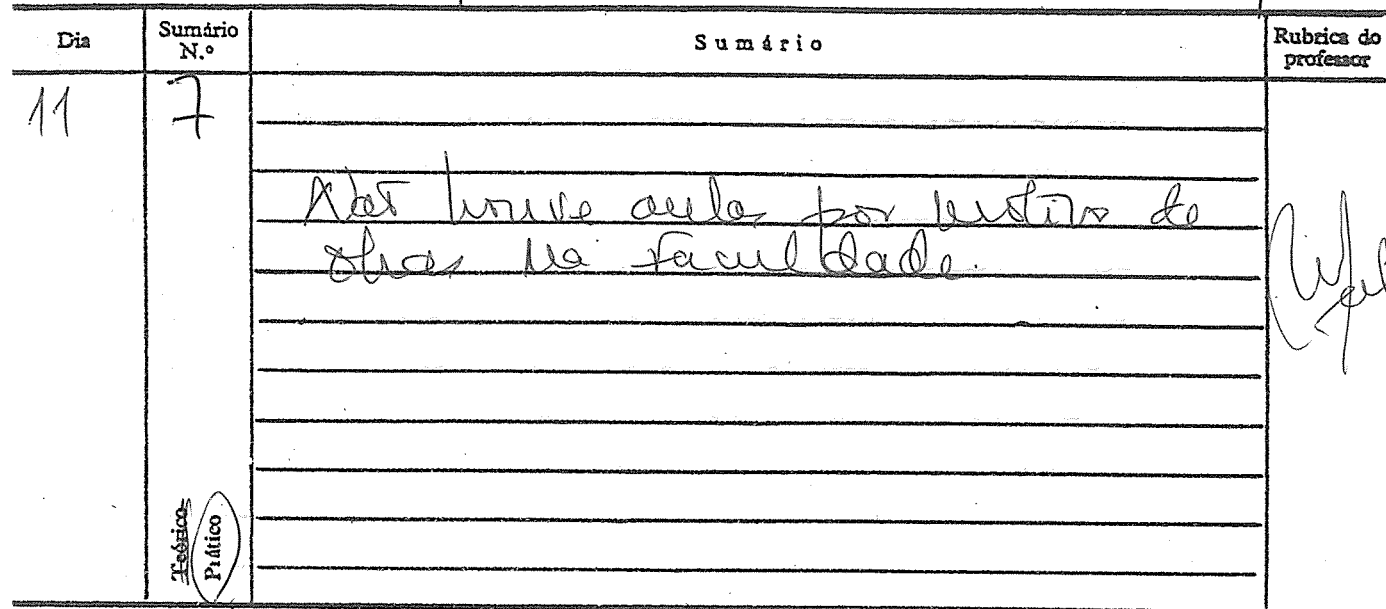 Dia Sumário N.º Sumário Rubrica do professor
11 7
Não houve aula por motivo de
obras na Faculdade.
Teórico
Prático